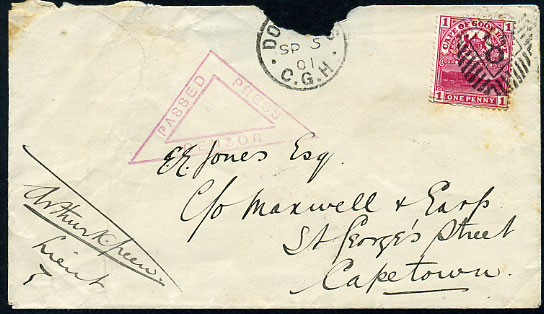 DO
SP 5
01
C.G.H.
PASSED PRESS
CENSOR
1 CAPE OF GOOD HOPE 1
1 ONE PENNY 1
8
E.E. Jones Esq.
C/o Maxwell & Earp
St George's Street
Capetown.
Arthur
Lieut